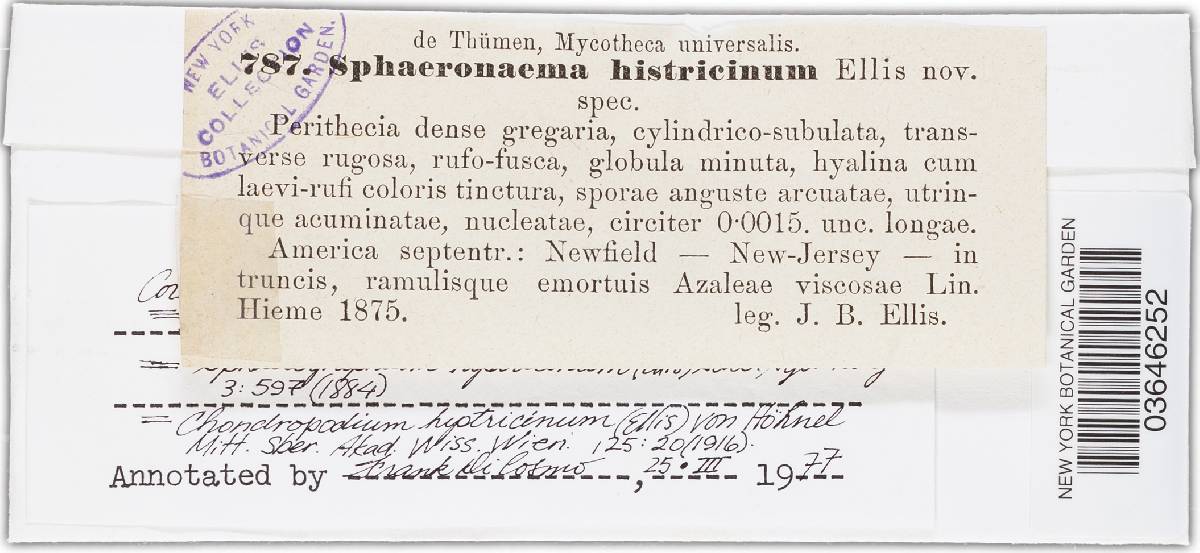 NEW YORK
ELLIS
COLLECTION
BOTANICAL GARDEN.
de Thümen, Mycotheca universalis.
787. Sphaeronaema histricinum Ellis nov.
spec.
Perithecia dense gregaria, cylindrico-subulata, trans-
verse rugosa, rufo-fusca, globula minuta, hyalina cum
laevi-rufi coloris tinctura, sporae anguste arcuatae, utrin-
que acuminatae, nucleatae, circiter 0·0015. unc. longae.
America septentr.: Newfield — New-Jersey — in
truncis, ramulisque emortuis Azaleae viscosae Lin.
Hieme 1875. leg. J. B. Ellis.
3: 597 (1884)
= Chondropodium hystricinum (Ellis) von Höhnel
Mitt. Sber. Akad. Wiss. Wien. 125: 20 (1916).
Annotated by Frank Di Cosmo, 25·III 1977
NEW YORK BOTANICAL GARDEN
03646252